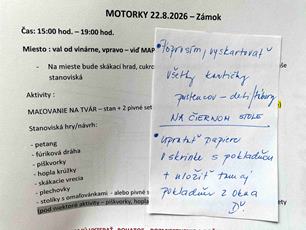 MOTORKY 22.8.2026 – Zámok
Čas: 15:00 hod. – 19:00 hod.
Miesto : val od vinárne, vpravo – viď MAP
- Na mieste bude skákací hrad, cukro
stanoviská
Aktivity :
MAĽOVANIE NA TVÁR – stan + 2 pivné set
Stanoviská hry/návrh:
- petang
- fúriková dráha
- piškvorky
- hopla krúžky
- skákacie vrecia
- plechovky
- stolíky s omaľovánkami - alebo pivné s
(pod niektoré aktivity – piškvorky, hopla
• Poprosím, vyskartovať
všetky kartičky
- deti/tábory
NA ČIERNOM STOLE
• upratať papiere
v skrinke s pokladňou
+ uložiť tam aj
pokladňu z okna